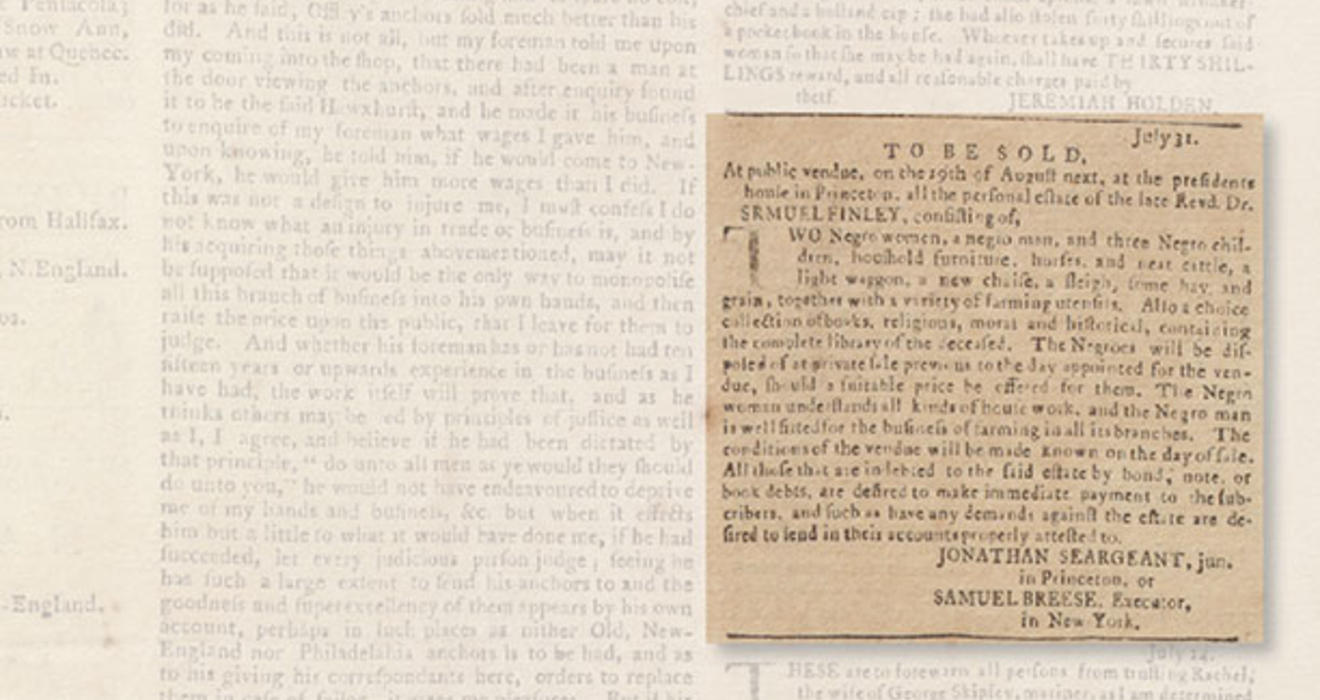 Pentacola;
Snow Ann,
w at Quebec.
ed In.
ucket.
rom Halifax.
N.England.
-England.
for as he said, Off y's anchors ſold much better than his
did. And this is not all, but my foreman told me upon
my coming into the ſhop, that there had been a man at
the door viewing the anchors, and after enquiry found
it to be the ſaid Hawxhurſt, and he made it his buſineſs
to enquire of my foreman what wages I gave him, and
upon knowing, he told him, if he would come to New-
York, he would give him more wages than I did. If
this was not a deſign to injure me, I muſt confeſs I do
not know what an injury in trade or buſineſs is, and by
his acquiring thoſe things abovementioned, may it not
be ſuppoſed that it would be the only way to monopoliſe
all this branch of buſineſs into his own hands, and then
raiſe the price upon the public, that I leave for them to
judge. And whether his foreman has or has not had ten
fifteen years or upwards experience in the buſineſs as I
have had, the work itſelf will prove that, and as he
thinks others may be ed by principles of juſtice as well
as I, I agree, and believe if he had been dictated by
that principle, “ do unto all men as ye would they ſhould
do unto you,” he would not have endeavoured to deprive
me of my hands and buſineſs, &c. but when it effects
him but a little to what it would have done me, if he had
ſucceeded, let every judicious perſon judge ; ſeeing he
has ſuch a large extent to ſend his anchors to and the
goodneſs and ſuperexcellency of them appears by his own
account, perhaps in ſuch places as nither Old, New-
England nor Philadelphia anchors is to be had, and as
to his giving his correſpondants here, orders to replace
chief and a holland cap ; ſhe had alſo ſtolen forty ſhillings out of
a pocket book in the houſe. Whoever takes up and ſecures ſaid
woman ſo that ſhe may be had again, ſhall have THIRTY SHIL-
LINGS reward, and all reaſonable charges paid by
thetf. JEREMIAH HOLDEN.
July 31.
TO BE SOLD,
At public vendue, on the 19th of Auguſt next, at the preſidents
houſe in Princeton, all the perſonal eſtate of the late Revd. Dr.
SRMUEL FINLEY, conſiſting of,
TWO Negro women, a negro man, and three Negro chil-
dren, houſhold furniture, horſes, and neat cattle, a
light waggon, a new chaiſe, a ſleigh, ſome hay, and
grain, together with a variety of farming utenſils. Alſo a choice
collection of books, religious, moral and hiſtorical, containing
the complete library of the deceaſed. The Negroes will be diſ-
poſed of at private ſale previous to the day appointed for the ven-
due, ſhould a ſuitable price be offered for them. The Negro
woman underſtands all kinds of houſe work, and the Negro man
is well fitted for the buſineſs of farming in all its branches. The
conditions of the vendue will be made known on the day of ſale.
All thoſe that are indebted to the ſaid eſtate by bond, note, or
book debts, are deſired to make immediate payment to the ſub-
cribers, and ſuch as have any demands againſt the eſtate are de-
ſired to ſend in their accounts properly atteſted to.
JONATHAN SEARGEANT, jun.
in Princeton, or
SAMUEL BREESE, Executor,
in New York.
July 24.
THESE are to forewarn all perſons from truſting Rachel,
the wife of George Shipley, mariner, as I am determined